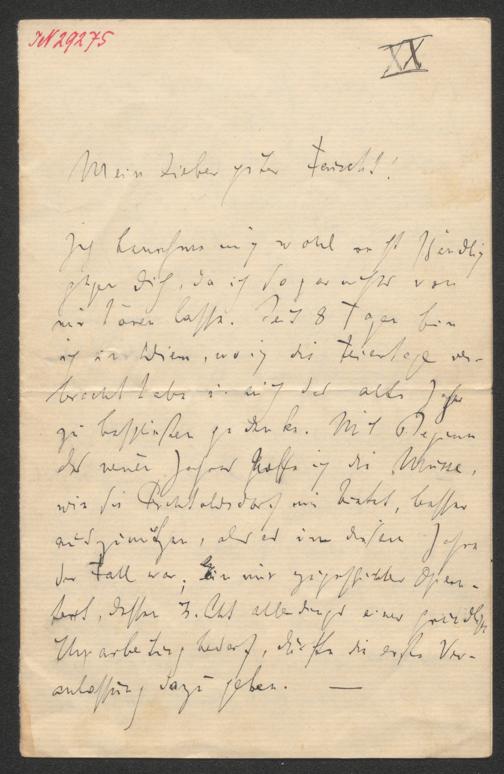 IN 29275
XX
Mein lieber guter Freund!
Ich benehme mich wohl recht schändlich
gegen Dich, da ich so gar nichts von
mir hören lasse. Seit 8 Tagen bin
ich in Wien, wo ich die Feiertage ver-
bracht habe u. auch das alte Jahr
zu beschließen gedenke. Mit Beginn
des neuen Jahres hoffe ich die Musse,
wie sie Perchtoldsdorf mir bietet, besser
auszunützen, als es in diesem Jahre
der Fall war; Ein mir zugeschickter Opern-
text, dessen 3. Akt allerdings einer gründlichen
Umarbeitung bedarf, dürfte die erste Ver-
anlassung dazu geben. —